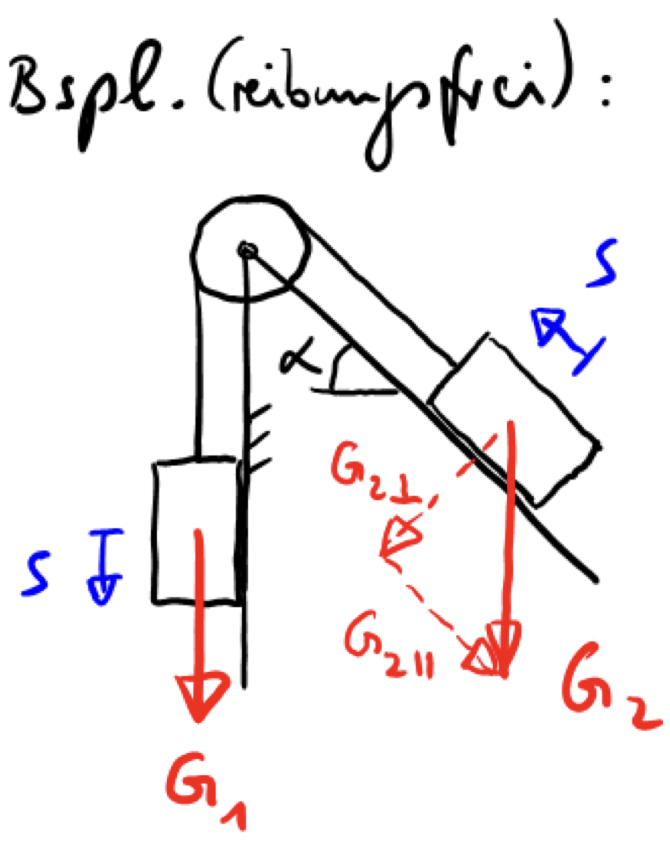 Bspl. (reibungsfrei):
S
α
G₂⊥
S
G₂∥
G₂
G₁